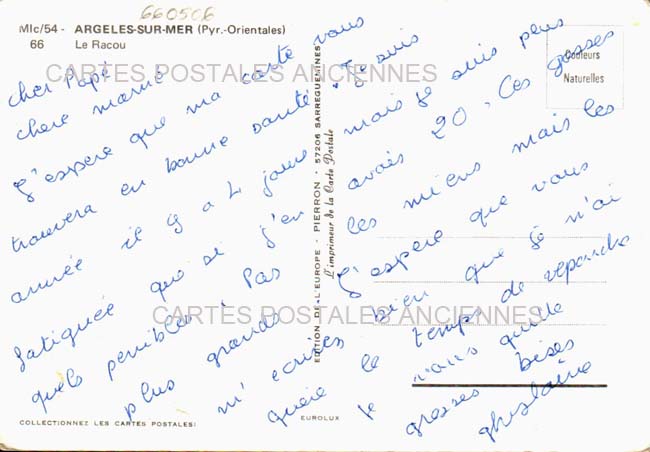 660506
Mlc/54 - ARGELES-SUR-MER (Pyr.-Orientales)
66 Le Racou
CARTES POSTALES ANCIENNES
cher Papé
chere mamé
J'espere que ma carte vous
trouvera en bonne santé
année il y a 4 jours
fatiguée que si j'en
quels penibles. Pas
plus grands
m'ecrivez bien que je n'ai
EDITION DE L'EUROPE - PIERRON - 57206 SARREGUEMINES
L'imprimeur de la Carte Postale
Couleurs
Naturelles
Je suis
mais je suis plus
avais 20. Ces gosses
les miens mais les
J'espere que vous
le temps de repondre
je vous quitte
grosses bises
ghislaine
CARTES POSTALES ANCIENNES
COLLECTIONNEZ LES CARTES POSTALES!
EUROLUX